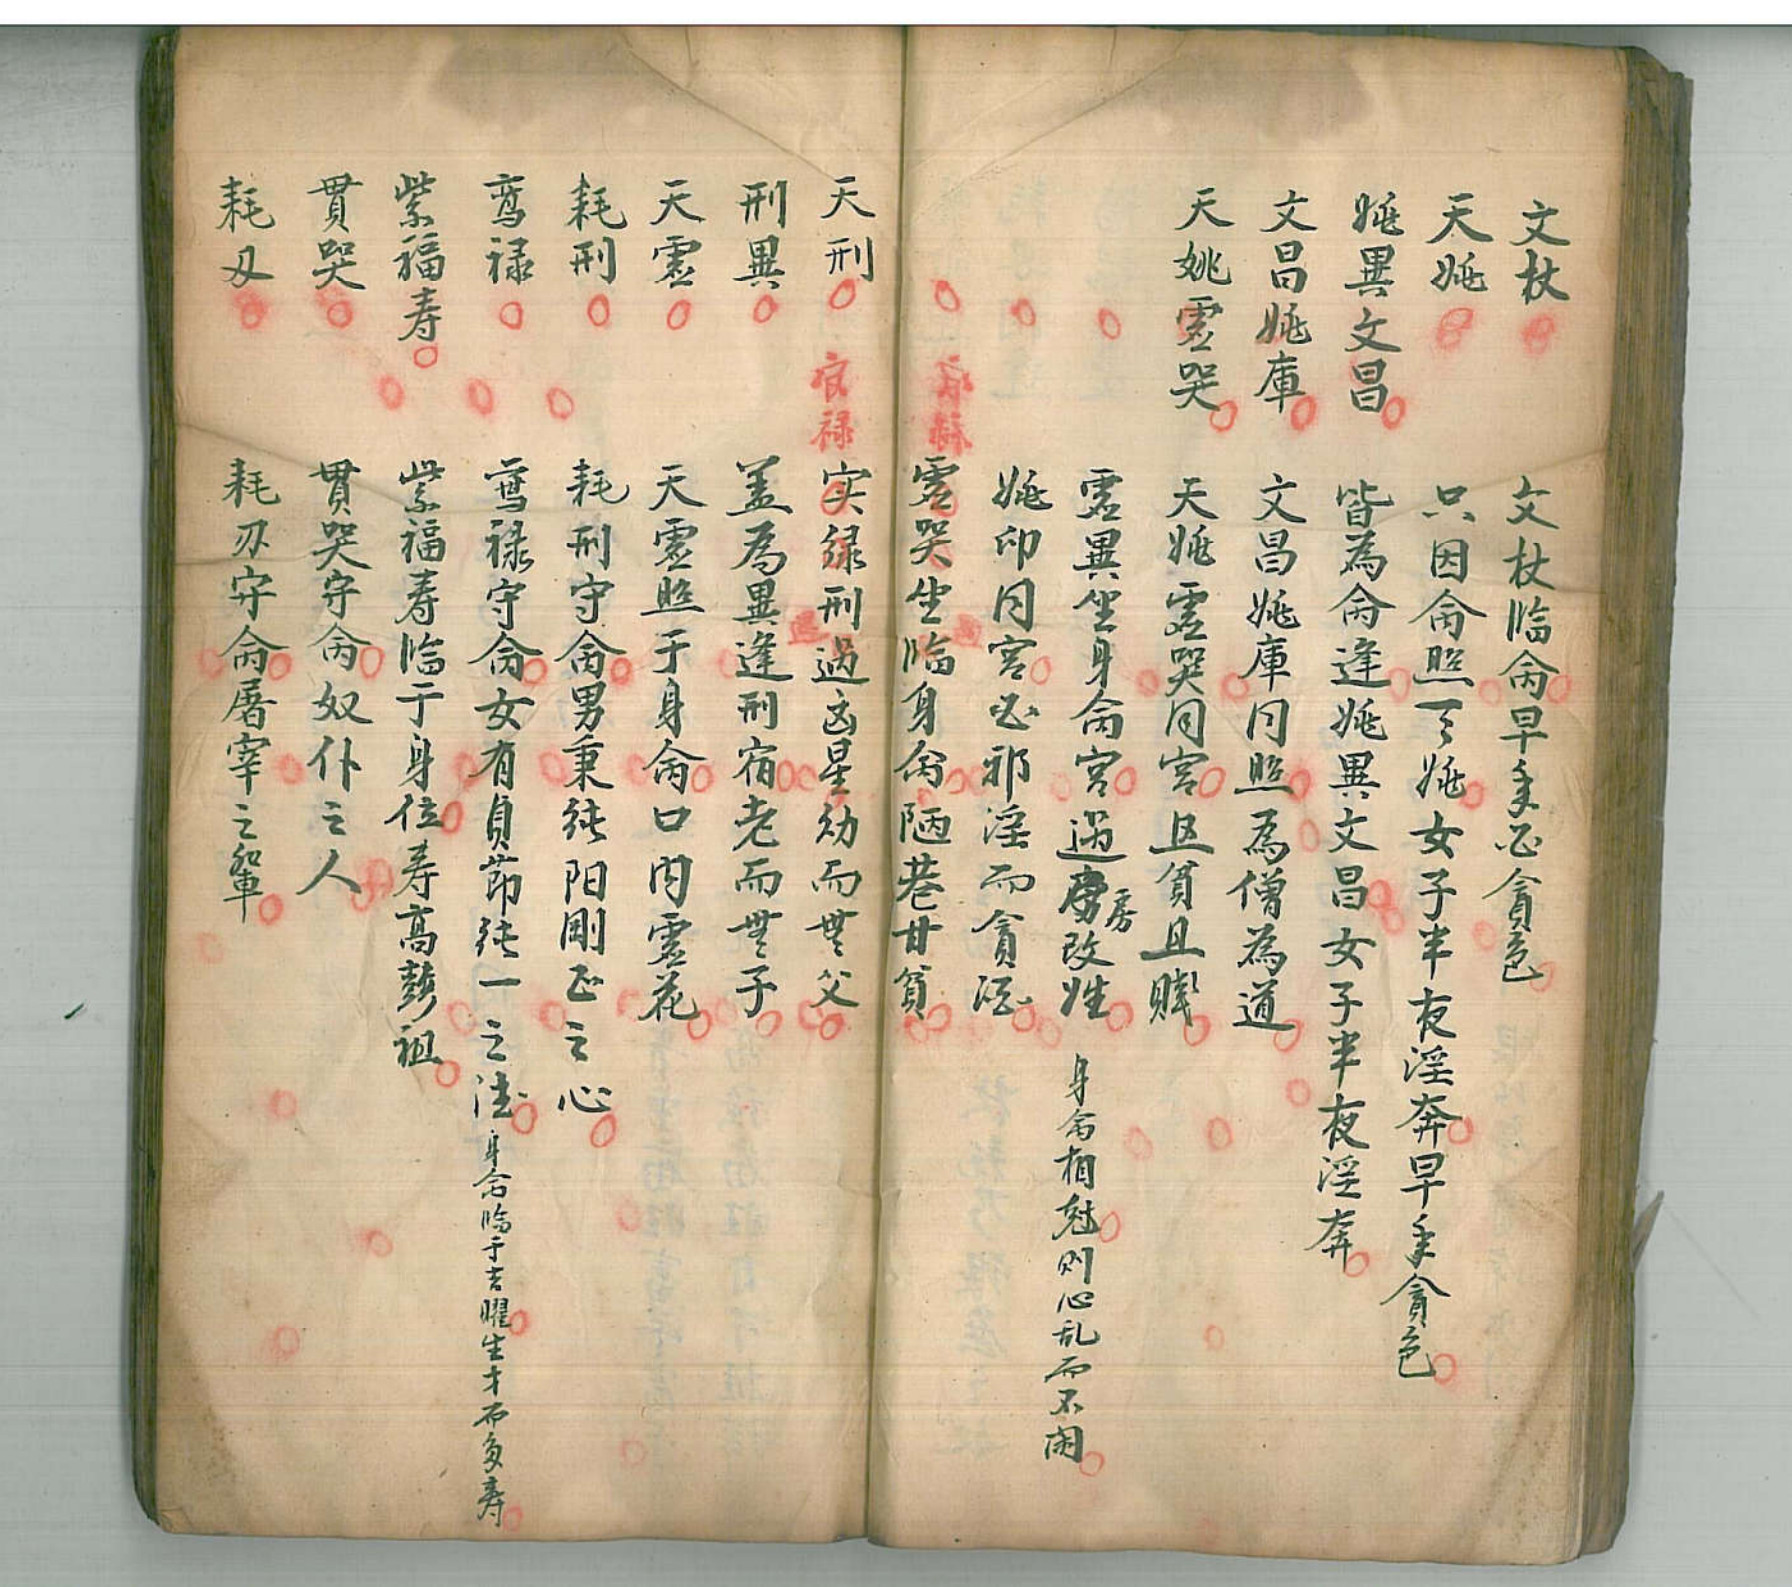 文杖 文杖临命早年必貪色
天姚 只因命照天姚女子半夜淫奔早年貪色
姚異文昌 皆為命逢姚異文昌女子半夜淫奔
文昌姚庫 文昌姚庫同照為僧為道
天姚虛哭 天姚虛哭同宮且貧且賤
虛異坐身命宮過房改姓 身命相尅則心乱而不閑
姚印同宮必邪淫而貪酒
虛哭坐临身命陋巷甘貧
天刑 官禄 实缘刑遇凶星幼而無父
刑異 盖為異逢刑宿老而無子
天虛 天虛照于身命口内虛花
耗刑 耗刑守命男秉純阳剛正之心
鸾禄 鸾禄守命女有貞節純一之德 身命临于吉曜生才而多寿
紫福寿 紫福寿临于身位寿高彭祖
貫哭 貫哭守命奴仆之人
耗刃 耗刃守命屠宰之輩